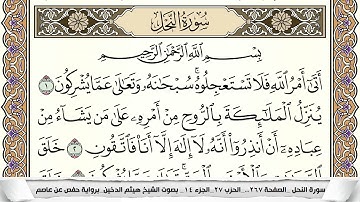 سُورَةُ النَّحْلِ
بِسْمِ اللَّهِ الرَّحْمَٰنِ الرَّحِيمِ
أَتَىٰ أَمْرُ اللَّهِ فَلَا تَسْتَعْجِلُوهُ سُبْحَانَهُ وَتَعَالَىٰ عَمَّا يُشْرِكُونَ ١
يُنَزِّلُ الْمَلَائِكَةَ بِالرُّوحِ مِنْ أَمْرِهِ عَلَىٰ مَن يَشَاءُ مِنْ
عِبَادِهِ أَنْ أَنذِرُوا أَنَّهُ لَا إِلَٰهَ إِلَّا أَنَا فَاتَّقُونِ ٢ خَلَقَ
سورة النحل _الصفحة ٢٦٧ _ الحزب ٢٧_ الجزء ١٤ _ بصوت الشيخ هيثم الدخين_ برواية حفص عن عاصم